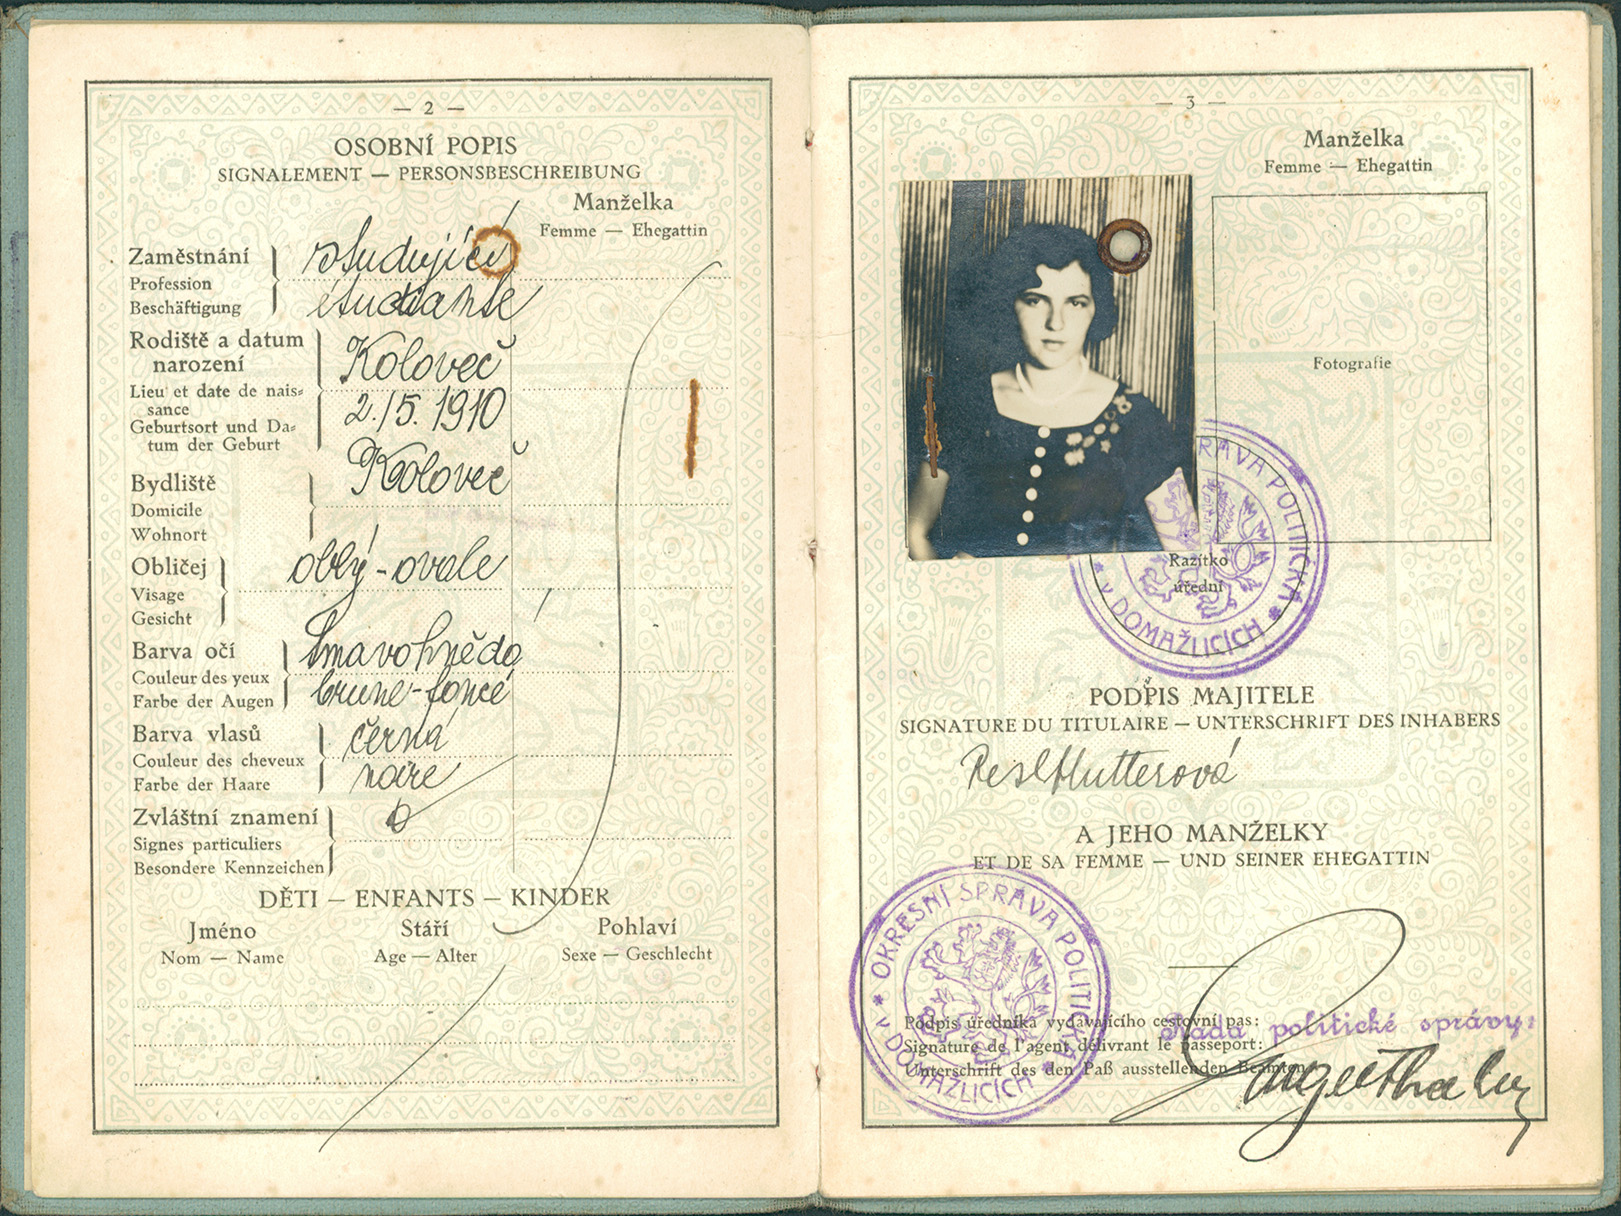 — 2 —
OSOBNÍ POPIS
SIGNALEMENT — PERSONSBESCHREIBUNG
Manželka
Femme — Ehegattin
Zaměstnání
Profession
Beschäftigung
studující
étudiante
Rodiště a datum
narození
Lieu et date de nais-
sance
Geburtsort und Da-
tum der Geburt
Koloveč
2./5. 1910
Bydliště
Domicile
Wohnort
Koloveč
Obličej
Visage
Gesicht
oblý - ovale
Barva očí
Couleur des yeux
Farbe der Augen
tmavohnědá
brune-foncé
Barva vlasů
Couleur des cheveux
Farbe der Haare
černá
noire
Zvláštní znamení
Signes particuliers
Besondere Kennzeichen
DĚTI — ENFANTS — KINDER
Jméno Stáří Pohlaví
Nom — Name Age — Alter Sexe — Geschlecht
— 3 —
Manželka
Femme — Ehegattin
Fotografie
SPRÁVA POLITICKÁ
* V DOMAŽLICÍCH *
Razítko
úřední
PODPIS MAJITELE
SIGNATURE DU TITULAIRE — UNTERSCHRIFT DES INHABERS
Resl Hutterová
A JEHO MANŽELKY
ET DE SA FEMME — UND SEINER EHEGATTIN
OKRESNÍ SPRÁVA POLITICKÁ
* V DOMAŽLICÍCH *
Podpis úředníka vydávajícího cestovní pas:
Rada politické správy:
Signature de l'agent délivrant le passeport:
Unterschrift des den Paß ausstellenden Beamten: